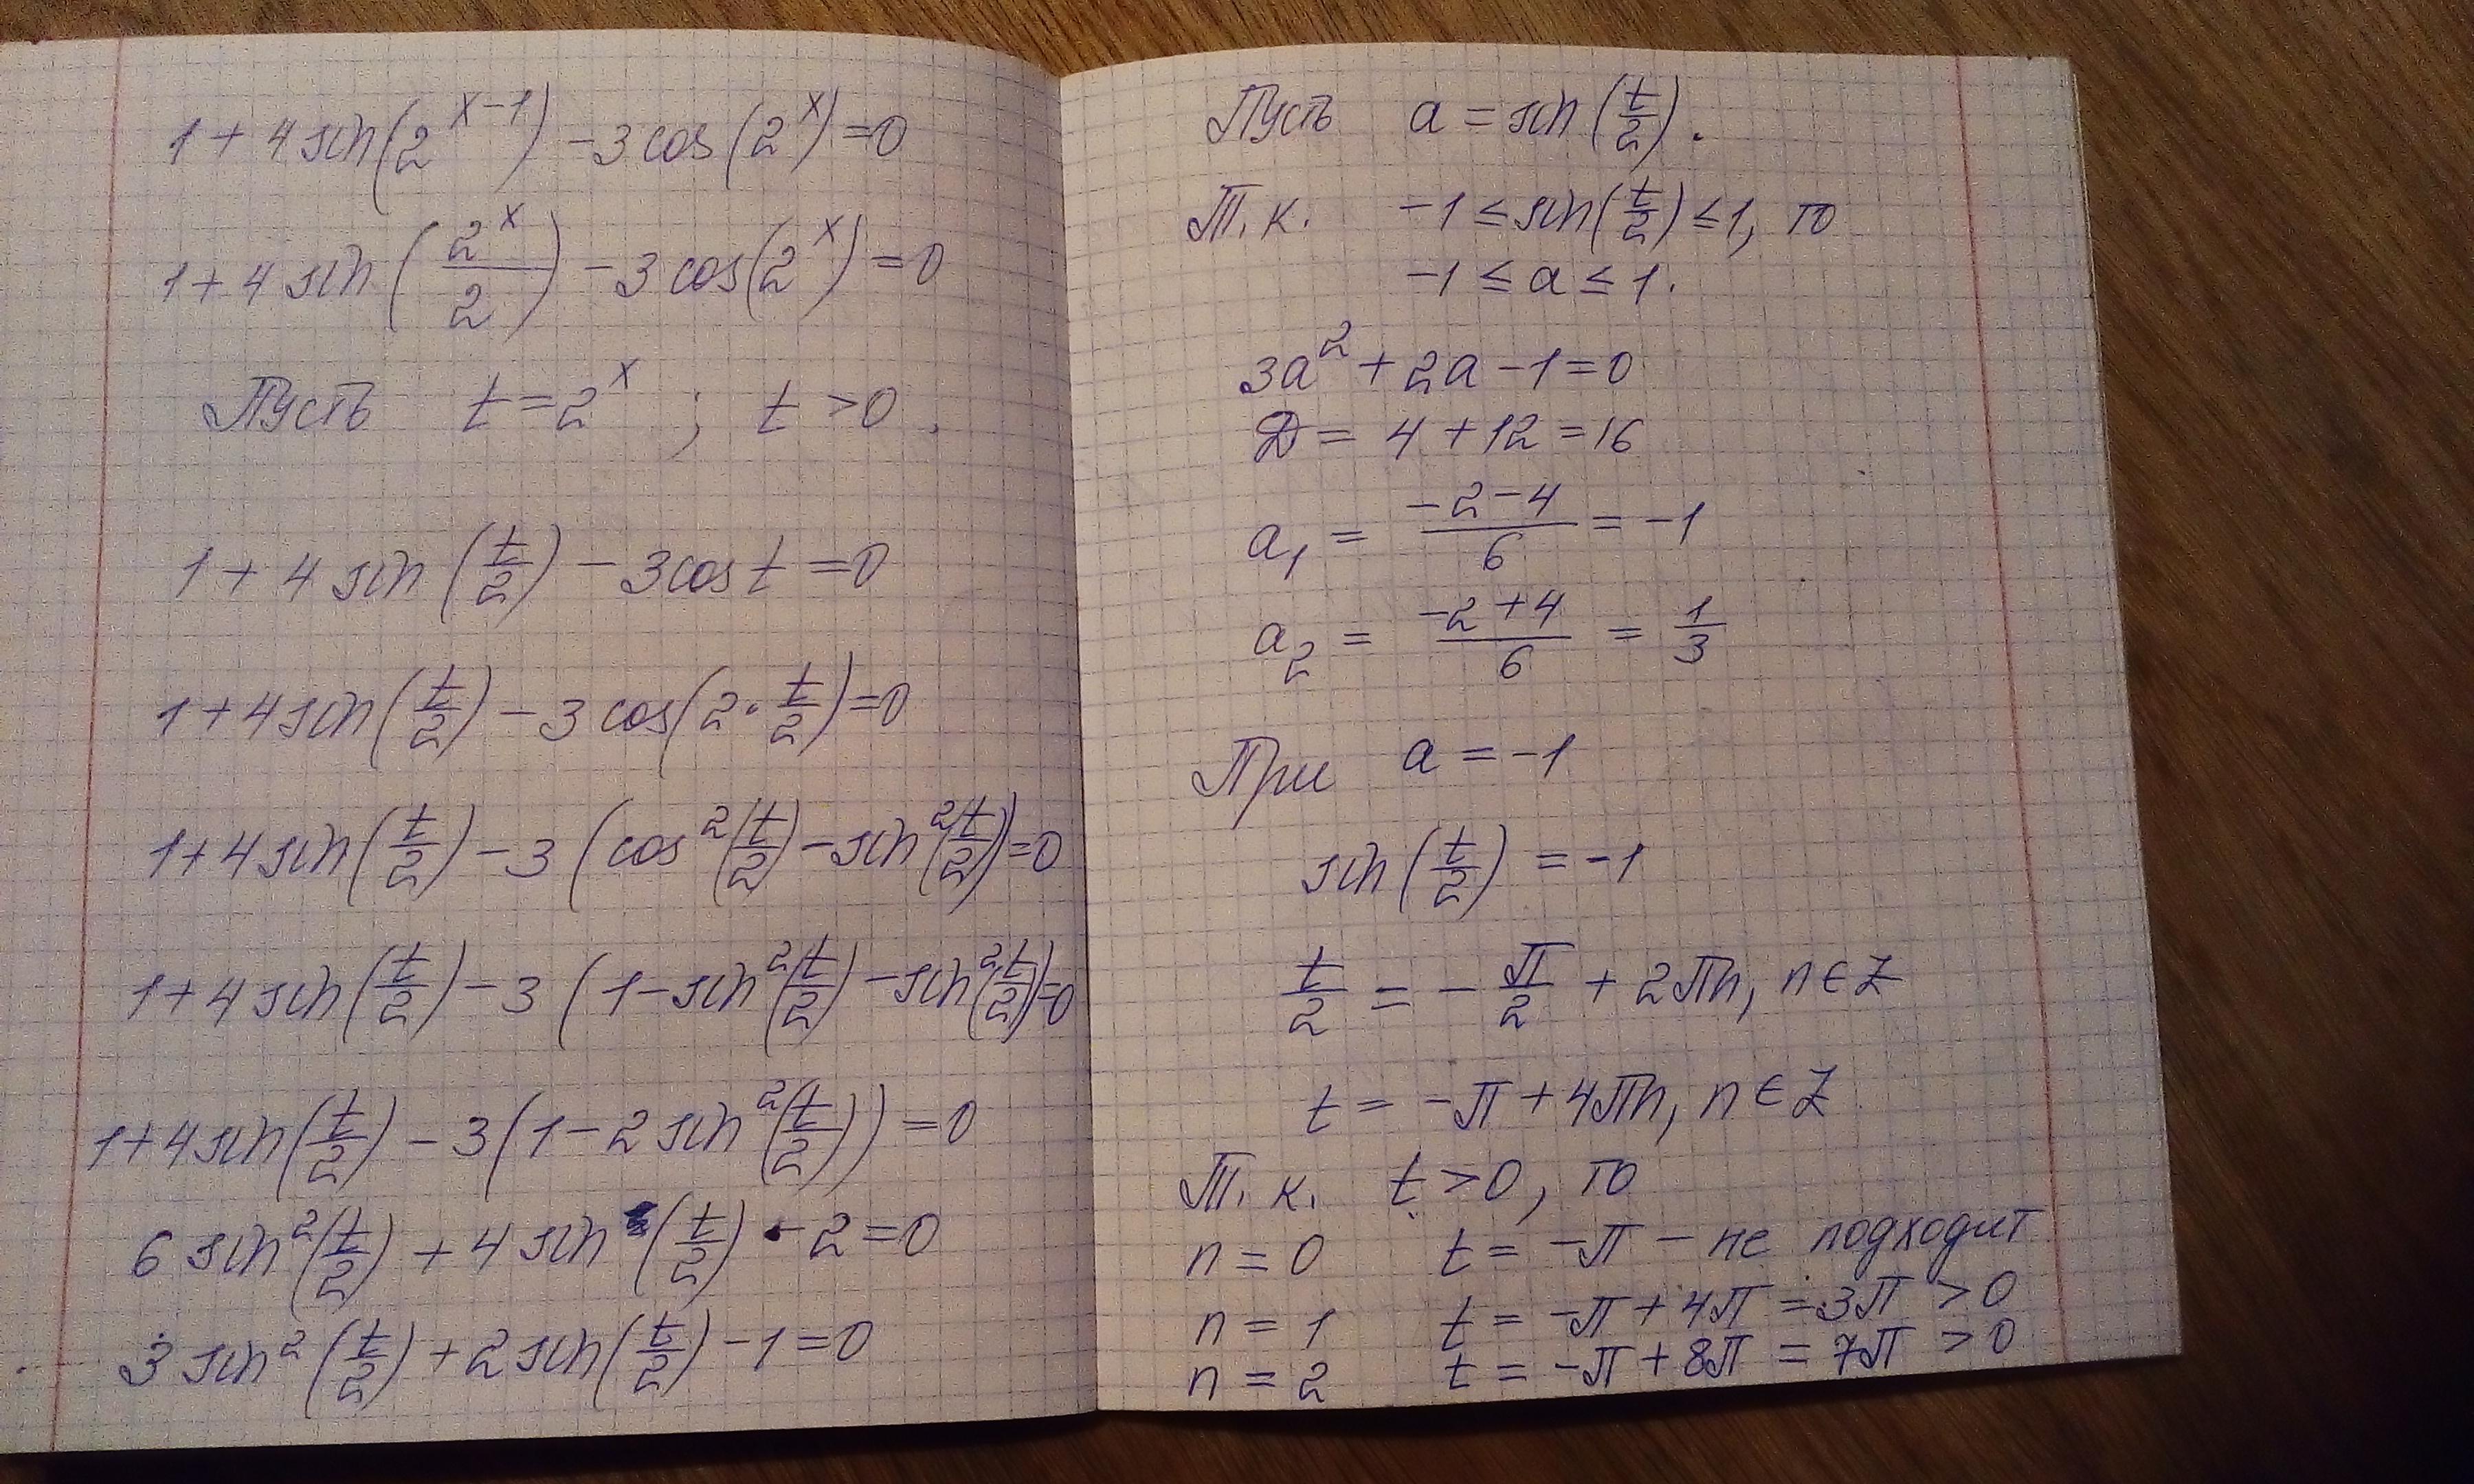 1 + 4 sin(2^(x-1)) - 3 cos(2^x) = 0
1 + 4 sin(2^x/2) - 3 cos(2^x) = 0
Пусть t = 2^x ; t > 0.
1 + 4 sin(t/2) - 3 cos t = 0
1 + 4 sin(t/2) - 3 cos(2·t/2) = 0
1 + 4 sin(t/2) - 3 (cos²(t/2) - sin²(t/2)) = 0
1 + 4 sin(t/2) - 3 (1 - sin²(t/2) - sin²(t/2)) = 0
1 + 4 sin(t/2) - 3 (1 - 2 sin²(t/2)) = 0
6 sin²(t/2) + 4 sin(t/2) - 2 = 0
3 sin²(t/2) + 2 sin(t/2) - 1 = 0
Пусть a = sin(t/2).
Т. к. -1 ≤ sin(t/2) ≤ 1, то
-1 ≤ a ≤ 1.
3a² + 2a - 1 = 0
Д = 4 + 12 = 16
a₁ = (-2-4)/6 = -1
a₂ = (-2+4)/6 = 1/3
При a = -1
sin(t/2) = -1
t/2 = -π/2 + 2πn, n ∈ Z
t = -π + 4πn, n ∈ Z
Т. к. t > 0, то
n = 0 t = -π - не подходит
n = 1 t = -π + 4π = 3π > 0
n = 2 t = -π + 8π = 7π > 0